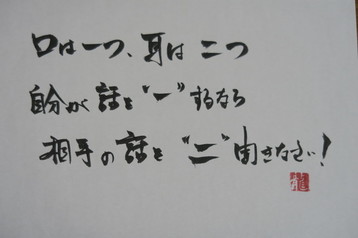 口は一つ、耳は二つ
自分が話を"一"するなら
相手の話を"二"聞きなさい!